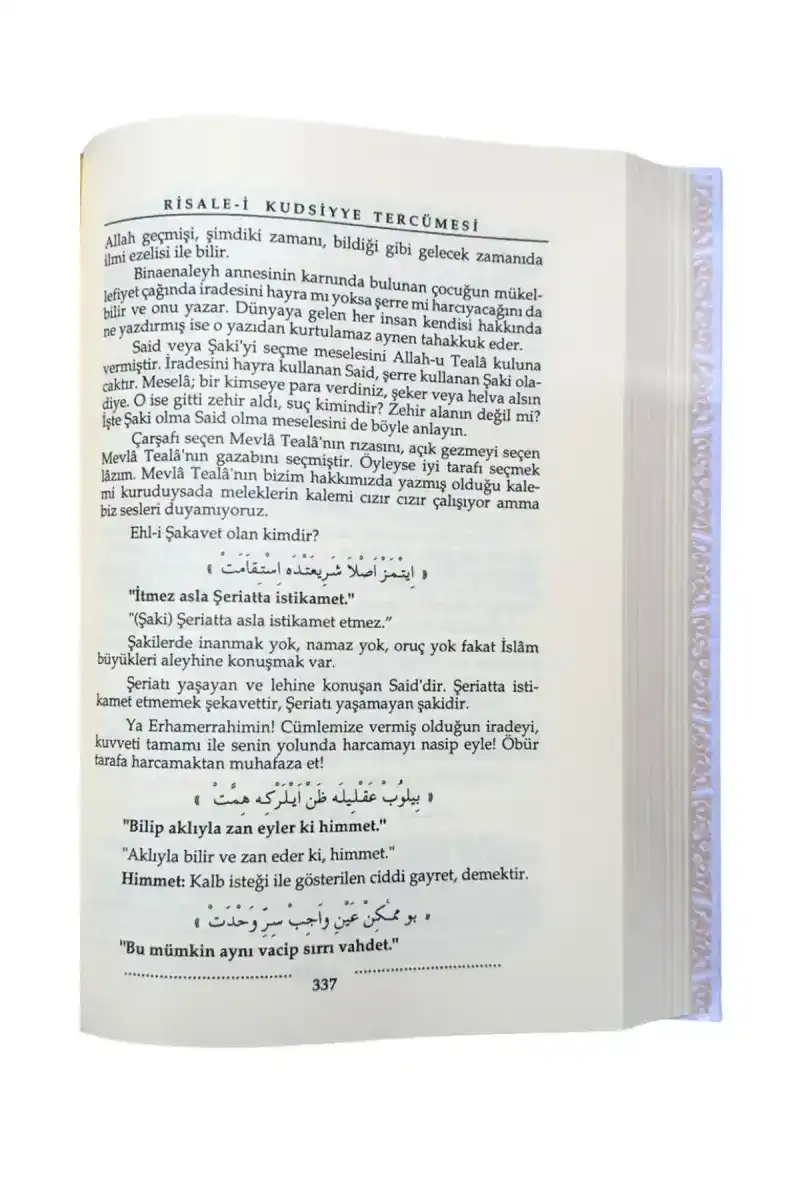 RİSALE-İ KUDSİYYE TERCÜMESİ
Allah geçmişi, şimdiki zamanı, bildiği gibi gelecek zamanıda
ilmi ezelisi ile bilir.
Binaenaleyh annesinin karnında bulunan çocuğun mükel-
lefiyet çağında iradesini hayra mı yoksa şerre mi harcıyacağını da
bilir ve onu yazar. Dünyaya gelen her insan kendisi hakkında
ne yazdırmış ise o yazıdan kurtulamaz aynen tahakkuk eder.
Said veya Şaki'yi seçme meselesini Allah-u Tealâ kuluna
vermiştir. İradesini hayra kullanan Said, şerre kullanan Şaki ola-
caktır. Meselâ; bir kimseye para verdiniz, şeker veya helva alsın
diye. O ise gitti zehir aldı, suç kimindir? Zehir alanın değil mi?
İşte Şaki olma Said olma meselesini de böyle anlayın.
Çarşafı seçen Mevlâ Tealâ'nın rızasını, açık gezmeyi seçen
Mevlâ Tealâ'nın gazabını seçmiştir. Öyleyse iyi tarafı seçmek
lâzım. Mevlâ Tealâ'nın bizim hakkımızda yazmış olduğu kale-
mi kuruduysada meleklerin kalemi cızır cızır çalışıyor amma
biz sesleri duyamıyoruz.
Ehl-i Şakavet olan kimdir?
﴿ اِيتْمَزْ اَصْلَا شَرِيعَتْدَه اِسْتِقَامَتْ ﴾
"İtmez asla Şeriatta istikamet."
"(Şaki) Şeriatta asla istikamet etmez."
Şakilerde inanmak yok, namaz yok, oruç yok fakat İslâm
büyükleri aleyhine konuşmak var.
Şeriatı yaşayan ve lehine konuşan Said'dir. Şeriatta isti-
kamet etmemek şekavettir, Şeriatı yaşamayan şakidir.
Ya Erhamerrahimin! Cümlemize vermiş olduğun iradeyi,
kuvveti tamamı ile senin yolunda harcamayı nasip eyle! Öbür
tarafa harcamaktan muhafaza et!
﴿ بِيلُوبْ عَقْلِيلَه ظَنْ اَيْلَرْكِه هِمَّتْ ﴾
"Bilip aklıyla zan eyler ki himmet."
"Aklıyla bilir ve zan eder ki, himmet."
Himmet: Kalb isteği ile gösterilen ciddi gayret, demektir.
﴿ بو مُمْكِنْ عَيْنِ وَاجِبْ سِرِّ وَحْدَتْ ﴾
"Bu mümkin aynı vacip sırrı vahdet."
337